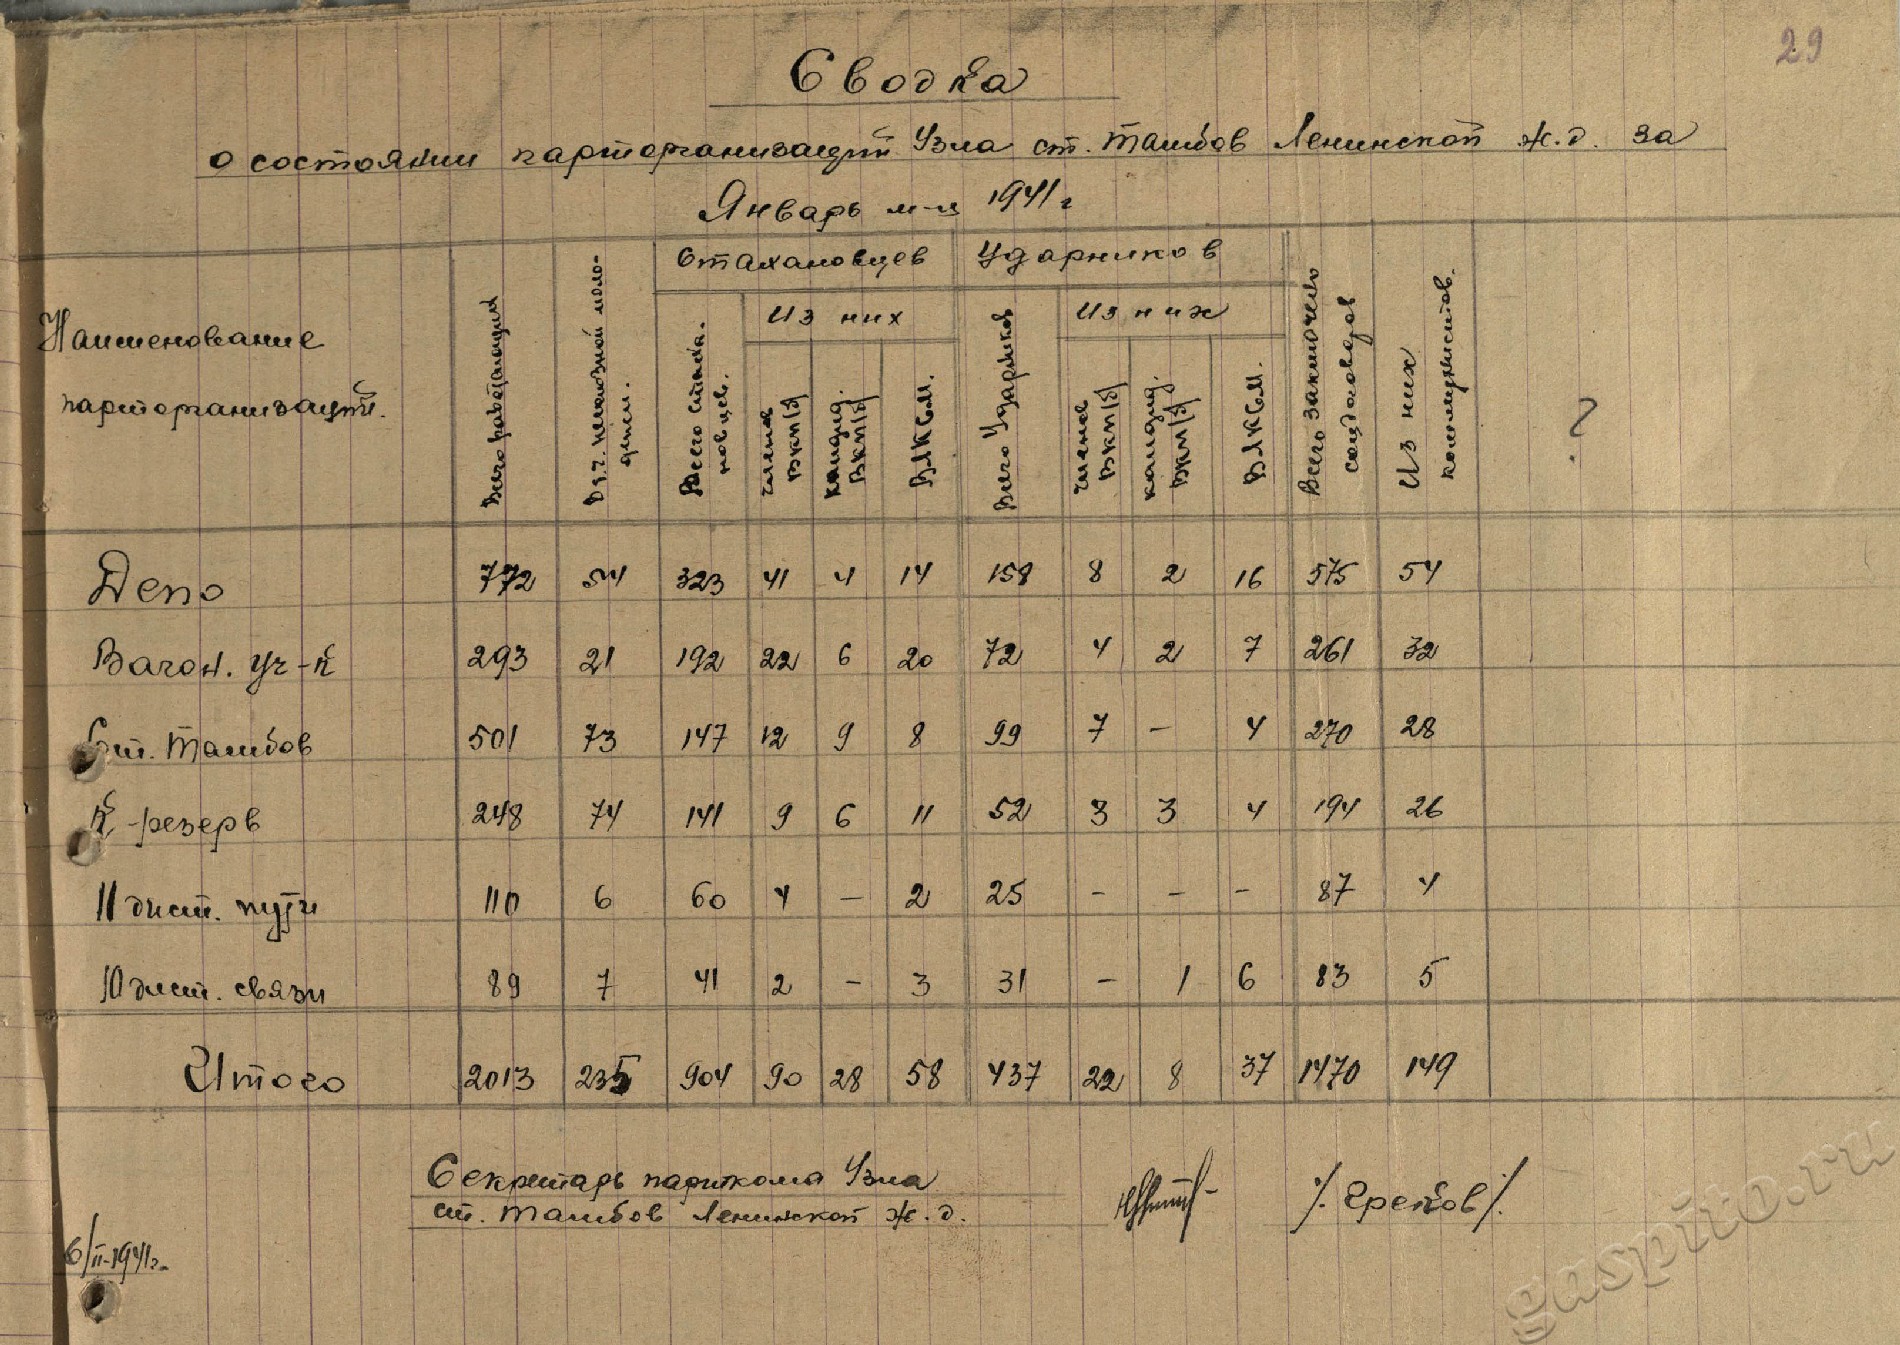 29
Сводка
о состоянии парторганизаций Узла ст. Тамбов Ленинской ж.д. за
Январь м-ц 1941 г
Наименование парторганизаций.
Всего работающих
В т.ч. несоюзной молодежи.
Стахановцев
Всего стахановцев.
Из них
членов ВКП/б/
кандид. ВКП/б/
ВЛКСМ.
Ударников
Всего Ударников
Из них
членов ВКП/б/
кандид. ВКП/б/
ВЛКСМ.
Всего заключено соцдоговоров
Из них коммунистов.
?
Депо 772 54 323 41 4 14 158 8 2 16 575 54
Вагон. уч-к 293 21 192 22 6 20 72 4 2 7 261 32
Ст. Тамбов 501 73 147 12 9 8 99 7 — 4 270 28
К-резерв 248 74 141 9 6 11 52 3 3 4 194 26
11 дист. пути 110 6 60 4 — 2 25 - - - 87 4
10 дист. связи 89 7 41 2 - 3 31 - 1 6 83 5
Итого 2013 235 904 90 28 58 437 22 8 37 1470 149
Секретарь парткома Узла
ст. Тамбов Ленинской ж.д. /Греков/.
6/II-1941г.
gaspito.ru